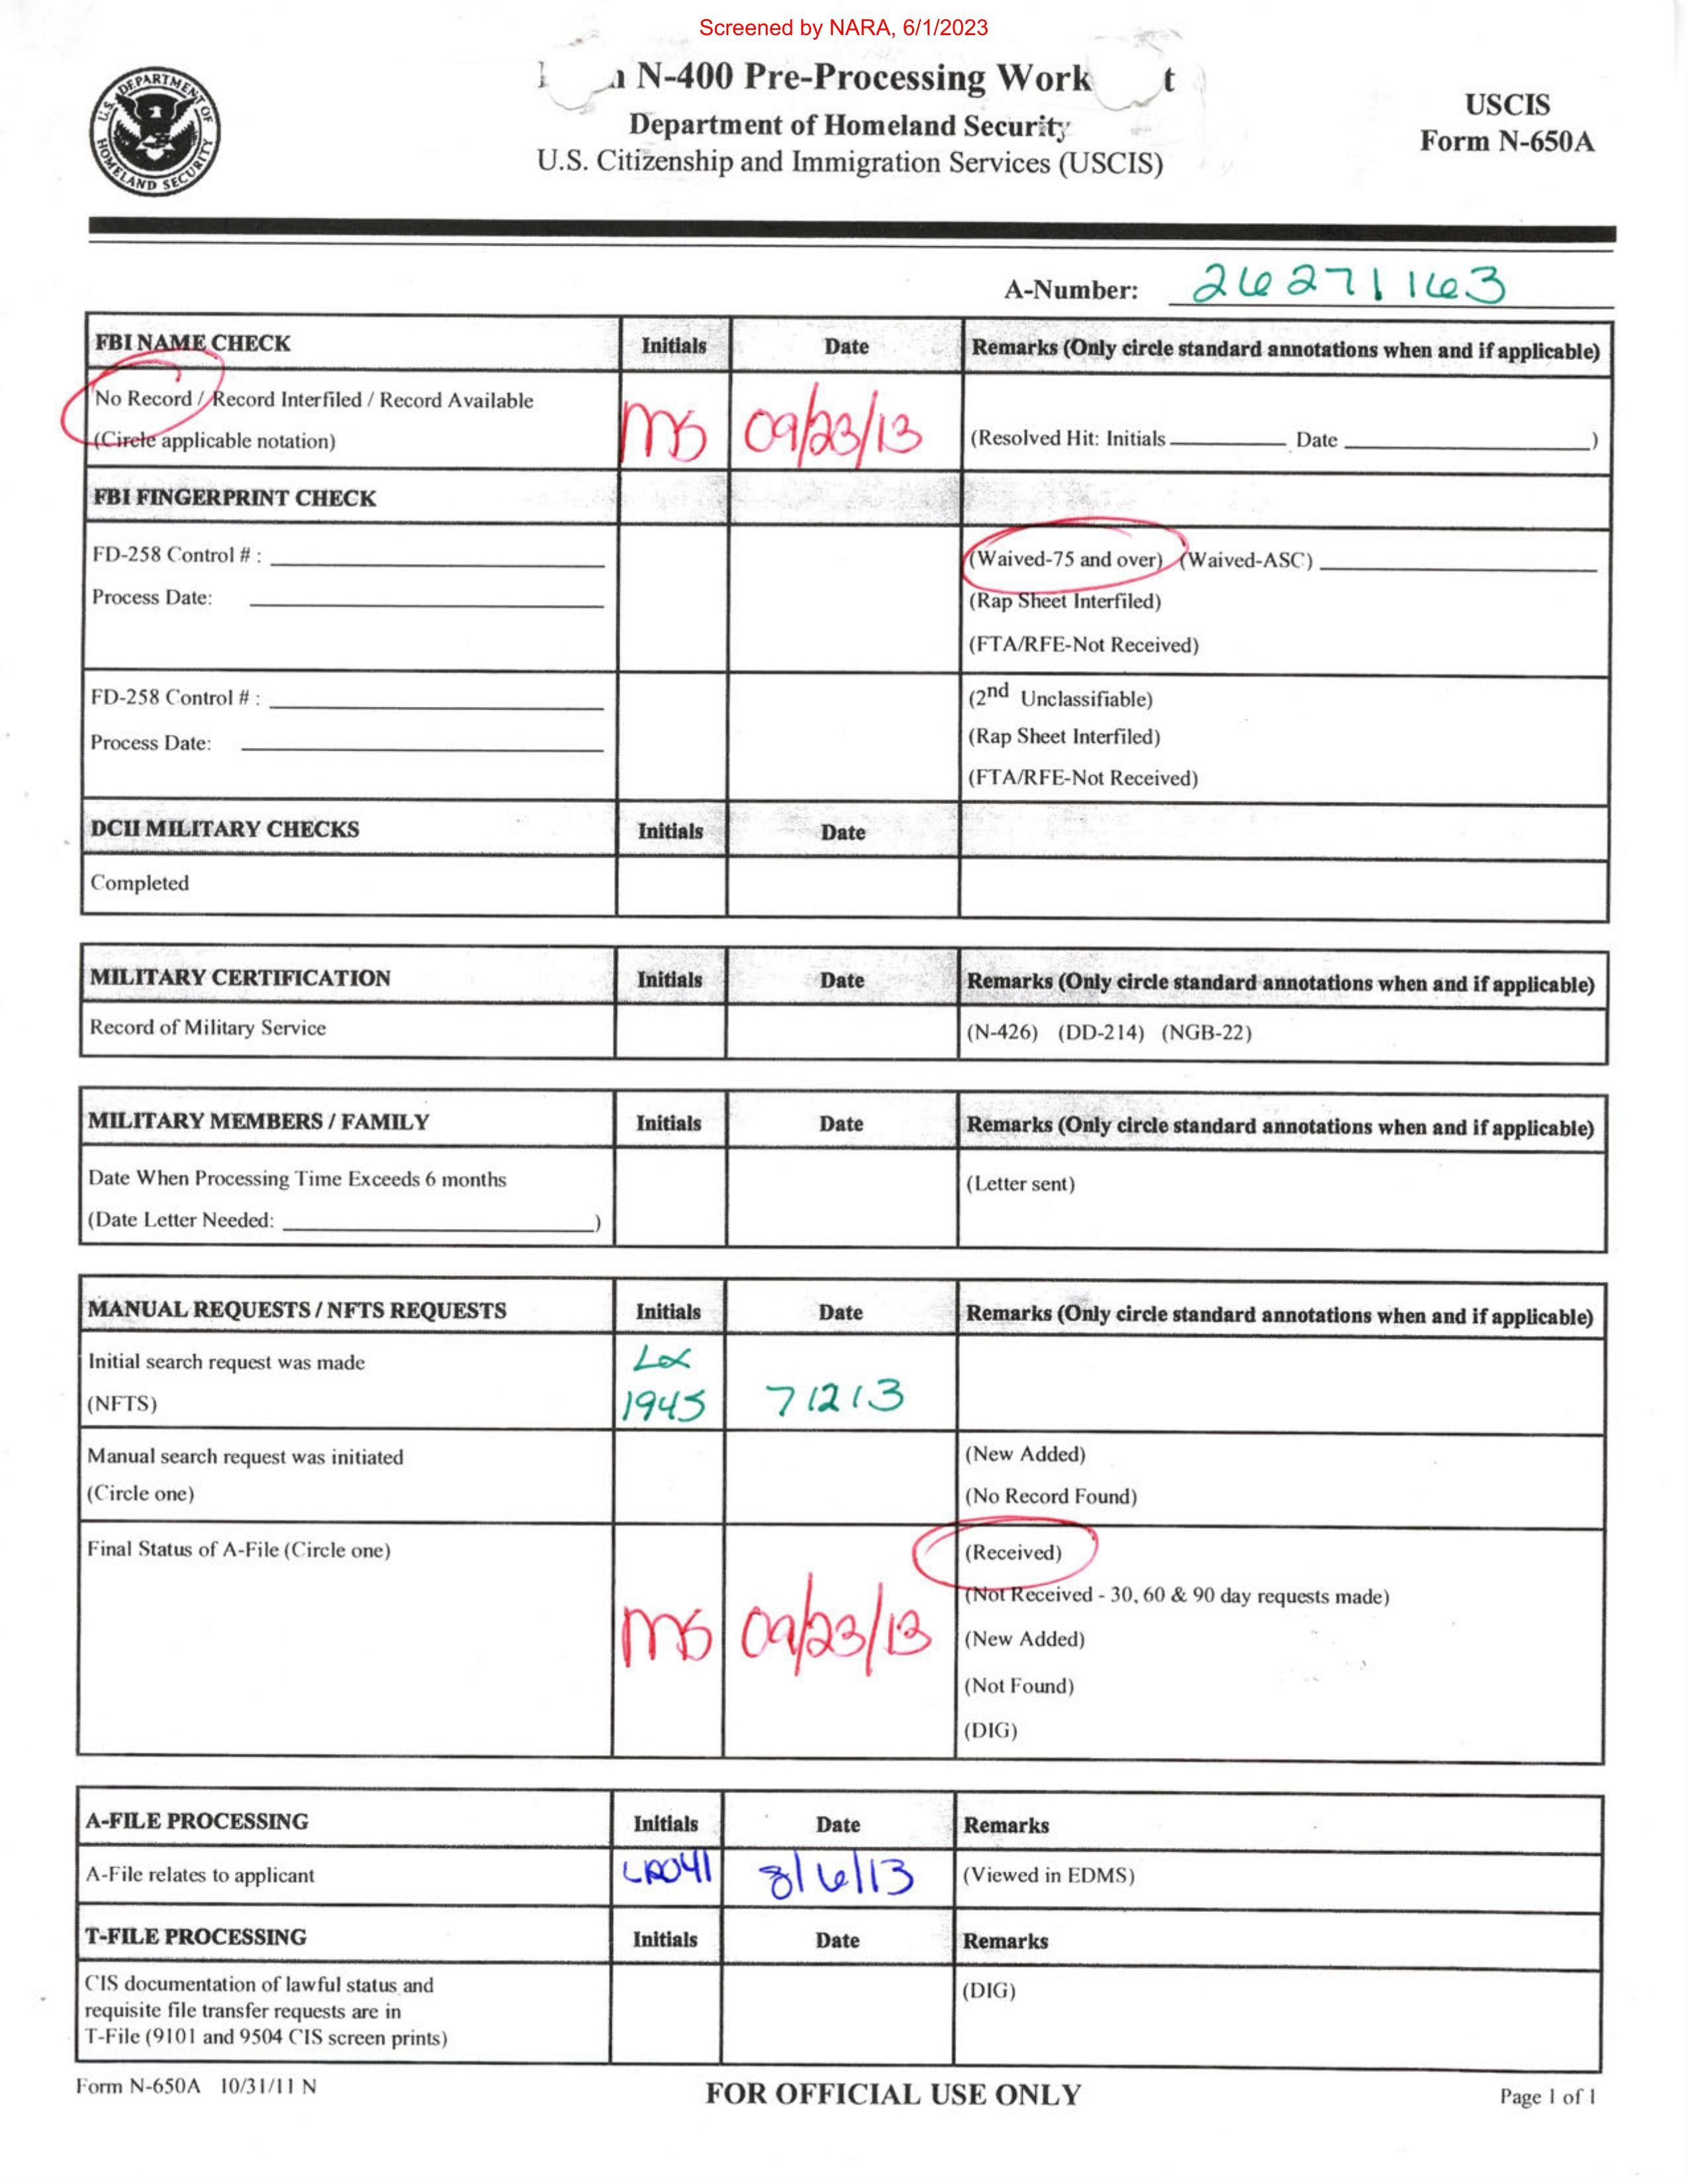 Screened by NARA, 6/1/2023
N-400 Pre-Processing Work t
Department of Homeland Security
U.S. Citizenship and Immigration Services (USCIS)
USCIS
Form N-650A
U.S. DEPARTMENT OF HOMELAND SECURITY
A-Number: 26271163
FBI NAME CHECK Initials Date Remarks (Only circle standard annotations when and if applicable)
No Record / Record Interfiled / Record Available
(Circle applicable notation) MS 09/23/13 (Resolved Hit: Initials Date )
FBI FINGERPRINT CHECK
FD-258 Control # : (Waived-75 and over) (Waived-ASC)
Process Date: (Rap Sheet Interfiled)
(FTA/RFE-Not Received)
FD-258 Control # : (2nd Unclassifiable)
Process Date: (Rap Sheet Interfiled)
(FTA/RFE-Not Received)
DCII MILITARY CHECKS Initials Date
Completed
MILITARY CERTIFICATION Initials Date Remarks (Only circle standard annotations when and if applicable)
Record of Military Service (N-426) (DD-214) (NGB-22)
MILITARY MEMBERS / FAMILY Initials Date Remarks (Only circle standard annotations when and if applicable)
Date When Processing Time Exceeds 6 months (Letter sent)
(Date Letter Needed: )
MANUAL REQUESTS / NFTS REQUESTS Initials Date Remarks (Only circle standard annotations when and if applicable)
Initial search request was made
(NFTS) 1945 71213
Manual search request was initiated (New Added)
(Circle one) (No Record Found)
Final Status of A-File (Circle one) (Received)
(Not Received - 30, 60 & 90 day requests made)
MS 09/23/13 (New Added)
(Not Found)
(DIG)
A-FILE PROCESSING Initials Date Remarks
A-File relates to applicant 8/6/13 (Viewed in EDMS)
T-FILE PROCESSING Initials Date Remarks
CIS documentation of lawful status and (DIG)
requisite file transfer requests are in
T-File (9101 and 9504 CIS screen prints)
Form N-650A 10/31/11 N FOR OFFICIAL USE ONLY Page 1 of 1